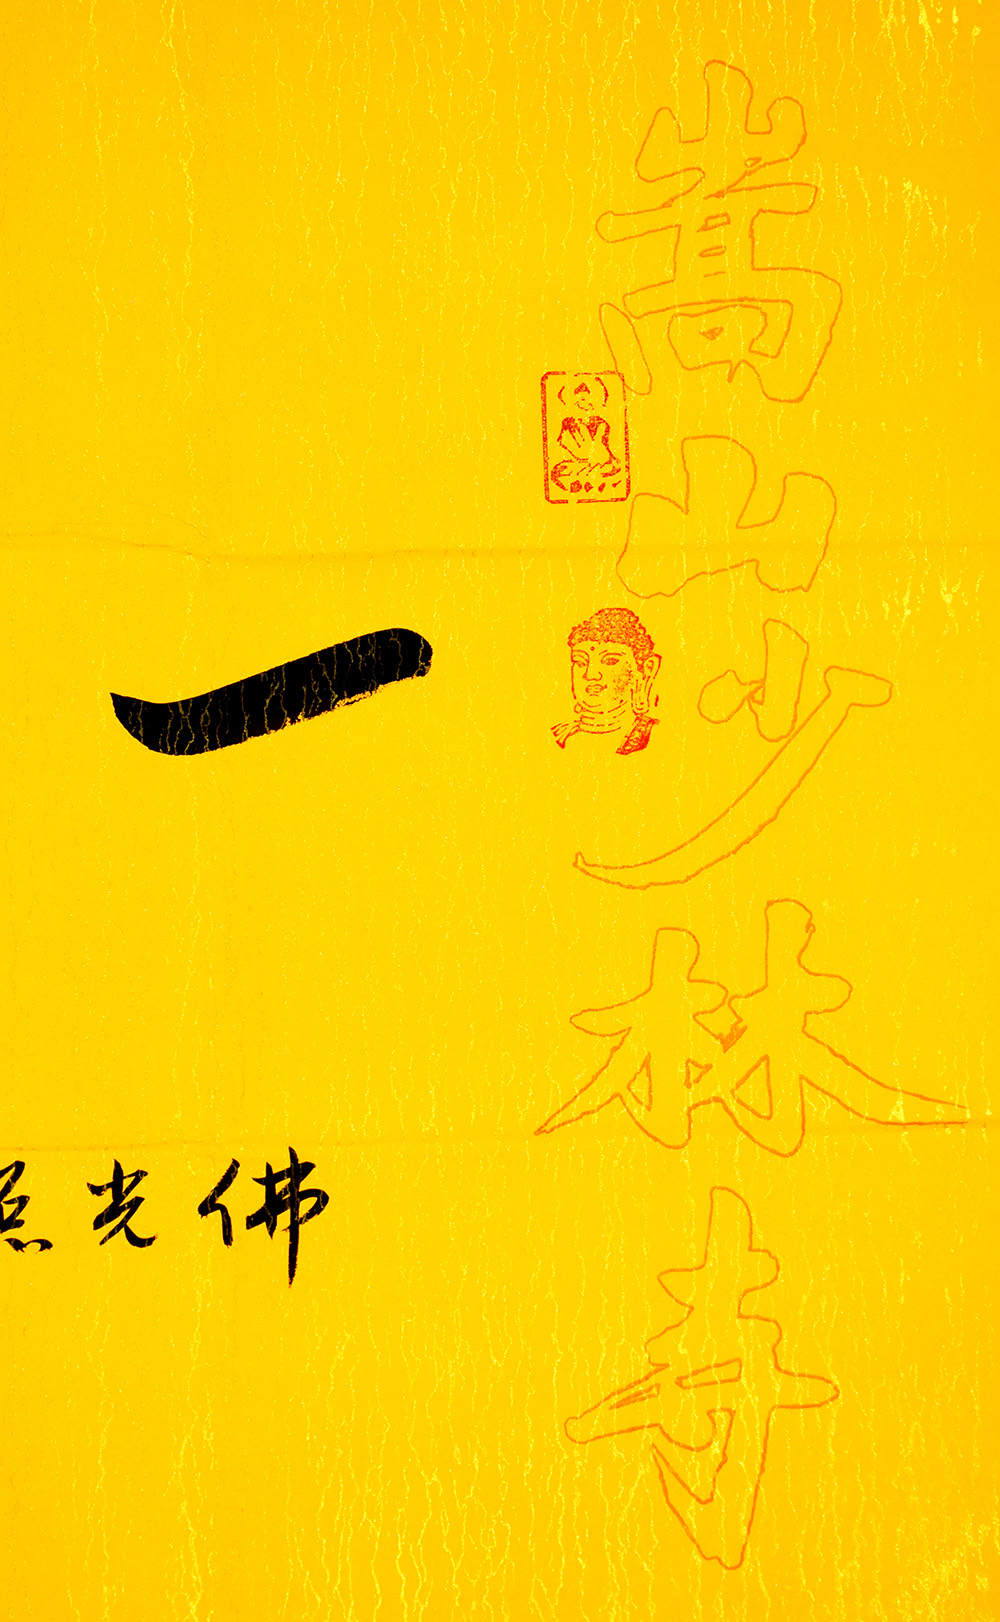 嵩山少林寺
一
佛光